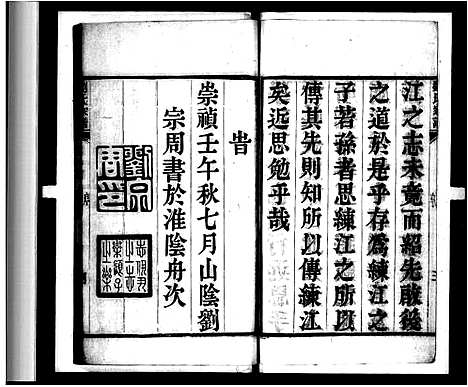 江之志未竟而紹先啟後
之道於是乎存為練江之
子若孫者思練江之所以
傳其先則知所以傳練江
矣近思勉乎哉
旹
崇禎壬午秋七月山陰劉
宗周書於淮陰舟次
劉宗
周印